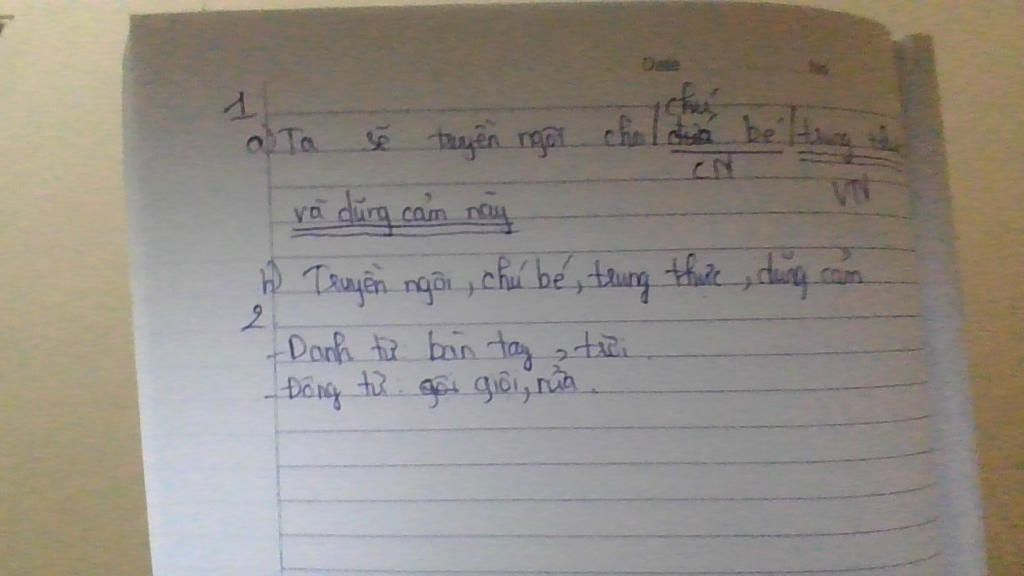 Date No
1
chú
a) Ta sẽ truyền ngôi cho / đứa bé / trung
CN
VN
và dũng cảm này
b) Truyền ngôi, chú bé, trung thực, dũng cảm
2
- Danh từ bàn tay, trời.
- Động từ: gội giội, rửa.